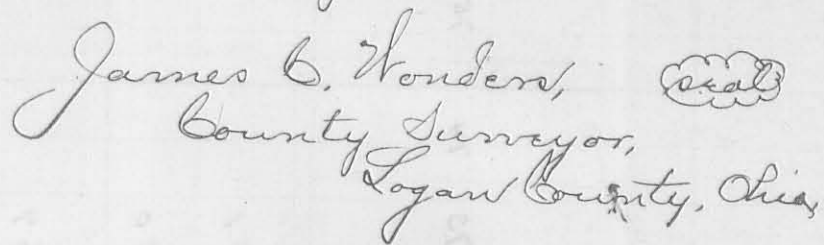 James C. Wonders, seal
County Surveyor,
Logan County, Ohio,